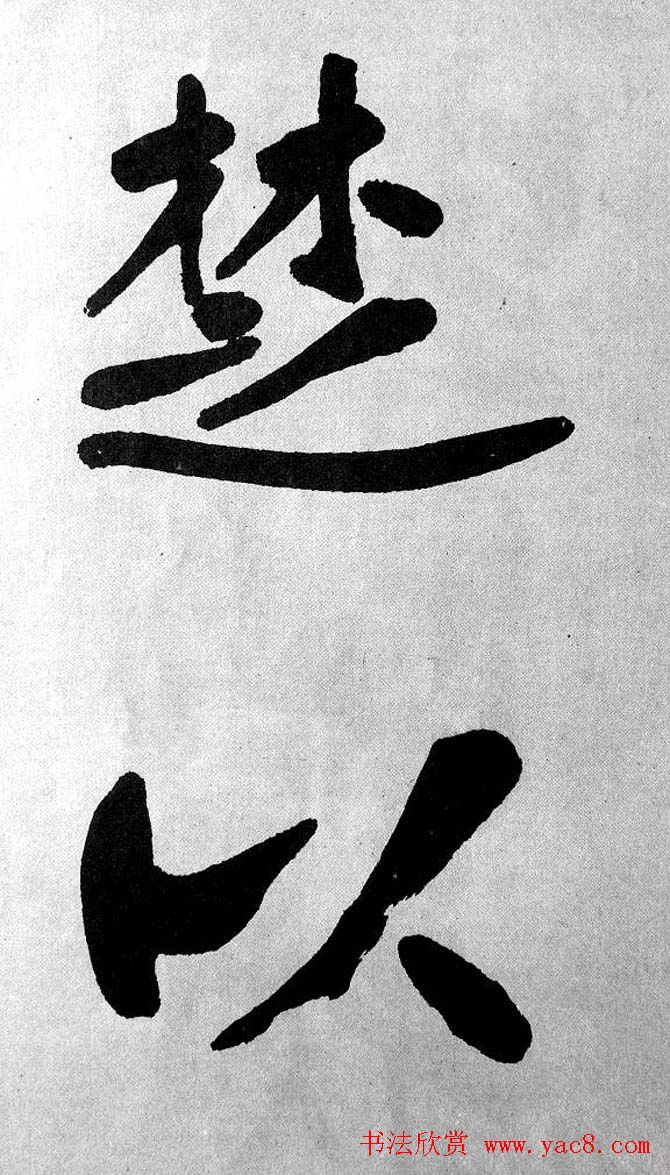 楚
以
书法欣赏 www.yac8.com